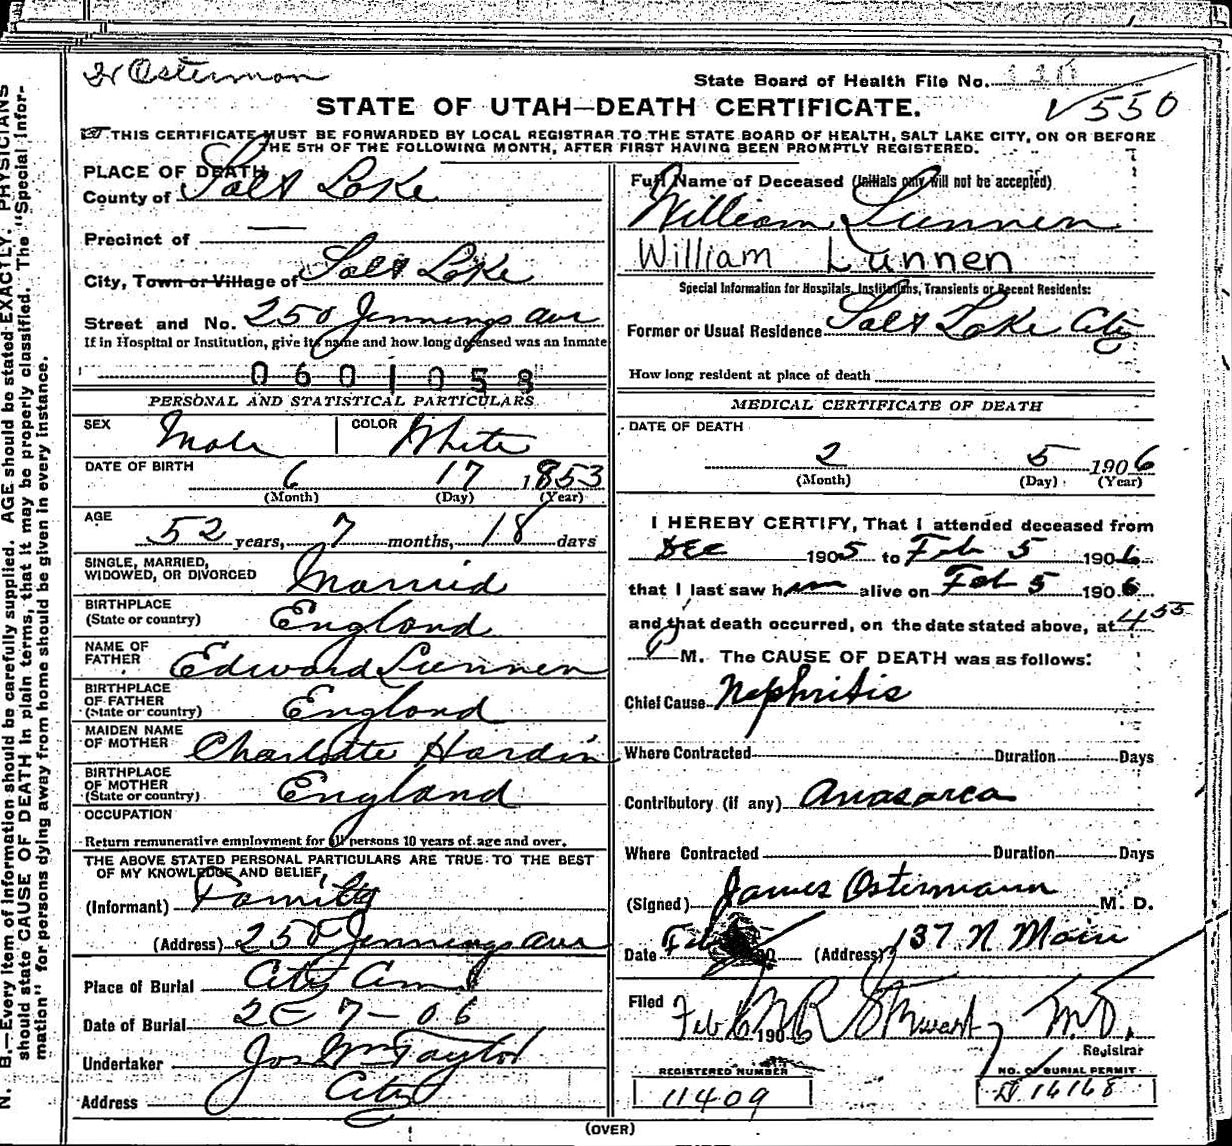 Dr Osterman
State Board of Health File No. 110
STATE OF UTAH—DEATH CERTIFICATE.
√550
THIS CERTIFICATE MUST BE FORWARDED BY LOCAL REGISTRAR TO THE STATE BOARD OF HEALTH, SALT LAKE CITY, ON OR BEFORE
THE 5TH OF THE FOLLOWING MONTH, AFTER FIRST HAVING BEEN PROMPTLY REGISTERED.
PLACE OF DEATH
County of Salt Lake
Precinct of —
City, Town or Village of Salt Lake
Street and No. 250 Jennings Ave
If in Hospital or Institution, give its name and how long deceased was an inmate
0601058
PERSONAL AND STATISTICAL PARTICULARS
SEX Male COLOR White
DATE OF BIRTH 6 17 1853
(Month) (Day) (Year)
AGE 52 years, 7 months, 18 days
SINGLE, MARRIED,
WIDOWED, OR DIVORCED Married
BIRTHPLACE
(State or country) England
NAME OF
FATHER Edward Lunnen
BIRTHPLACE
OF FATHER
(State or country) England
MAIDEN NAME
OF MOTHER Charlotte Hardin
BIRTHPLACE
OF MOTHER
(State or country) England
OCCUPATION
Return remunerative employment for all persons 10 years of age and over.
THE ABOVE STATED PERSONAL PARTICULARS ARE TRUE TO THE BEST
OF MY KNOWLEDGE AND BELIEF,
(Informant) Family
(Address) 250 Jennings Ave
Place of Burial City Cem
Date of Burial 2-7-06
Undertaker Jos Wm Taylor
Address City
Full Name of Deceased (Initials only will not be accepted)
William Lunnen
William Lunnen
Special Information for Hospitals, Institutions, Transients or Recent Residents:
Former or Usual Residence Salt Lake City
How long resident at place of death
MEDICAL CERTIFICATE OF DEATH
DATE OF DEATH
2 5 1906
(Month) (Day) (Year)
I HEREBY CERTIFY, That I attended deceased from
Dec 1905 to Feb 5 1906
that I last saw him alive on Feb 5 1906
and that death occurred, on the date stated above, at 4 55
P M. The CAUSE OF DEATH was as follows:
Chief Cause Nephritis
Where Contracted Duration Days
Contributory (if any) Anasarca
Where Contracted Duration Days
(Signed) James Ostermann M. D.
Date Feb (Address) 137 N Main
Filed Feb 6 1906 M R Stewart, M.D.
Registrar
REGISTERED NUMBER
11409
NO. OF BURIAL PERMIT
D 16168
(OVER)
N. B.—Every item of information should be carefully supplied. AGE should be stated EXACTLY. PHYSICIANS
should state CAUSE OF DEATH in plain terms, that it may be properly classified. The "Special Infor-
mation" for persons dying away from home should be given in every instance.